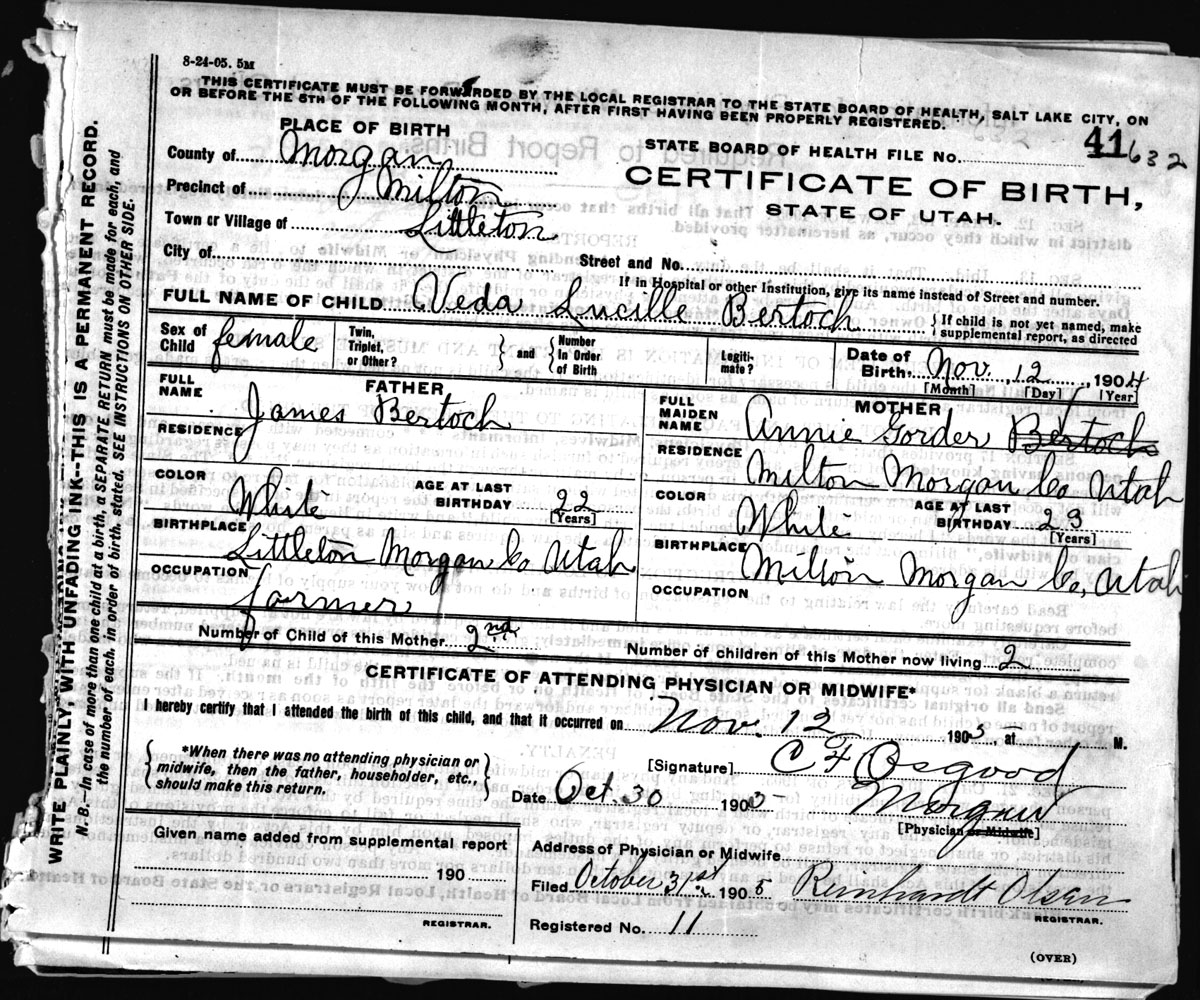 8-24-05. 5M
THIS CERTIFICATE MUST BE FORWARDED BY THE LOCAL REGISTRAR TO THE STATE BOARD OF HEALTH, SALT LAKE CITY, ON
OR BEFORE THE 5TH OF THE FOLLOWING MONTH, AFTER FIRST HAVING BEEN PROPERLY REGISTERED.
PLACE OF BIRTH
STATE BOARD OF HEALTH FILE No. 41632
County of Morgan
CERTIFICATE OF BIRTH,
Precinct of Milton
STATE OF UTAH.
Town or Village of Littleton
City of
Street and No.
If in Hospital or other Institution, give its name instead of Street and number.
FULL NAME OF CHILD Veda Lucille Bertoch
{If child is not yet named, make
supplemental report, as directed
Sex of Child female
Twin, Triplet, or Other?
} and {
Number In Order of Birth
Legitimate?
Date of Birth: Nov. 12, 1904
[Month] [Day] [Year]
FATHER
FULL NAME James Bertoch
RESIDENCE
COLOR White
AGE AT LAST BIRTHDAY 22
[Years]
BIRTHPLACE Littleton Morgan Co Utah
OCCUPATION farmer
MOTHER
FULL MAIDEN NAME Annie Gorder Bertoch
RESIDENCE Milton Morgan Co, Utah
COLOR White
AGE AT LAST BIRTHDAY 23
[Years]
BIRTHPLACE Milton Morgan Co, Utah
OCCUPATION
Number of Child of this Mother 2nd
Number of children of this Mother now living 2
CERTIFICATE OF ATTENDING PHYSICIAN OR MIDWIFE*
I hereby certify that I attended the birth of this child, and that it occurred on Nov. 12 1905 at M.
{*When there was no attending physician or
midwife, then the father, householder, etc.,
should make this return.}
[Signature] C F Osgood
Date Oct. 30 190
Morgan
[Physician or Midwife]
Given name added from supplemental report
190
REGISTRAR.
Address of Physician or Midwife
Filed October 31st 1905 Reinhardt Olsen
REGISTRAR.
Registered No. 11
(OVER)
WRITE PLAINLY, WITH UNFADING INK--THIS IS A PERMANENT RECORD.
N. B.--In case of more than one child at a birth, a SEPARATE RETURN must be made for each, and
the number of each, in order of birth, stated. SEE INSTRUCTIONS ON OTHER SIDE.